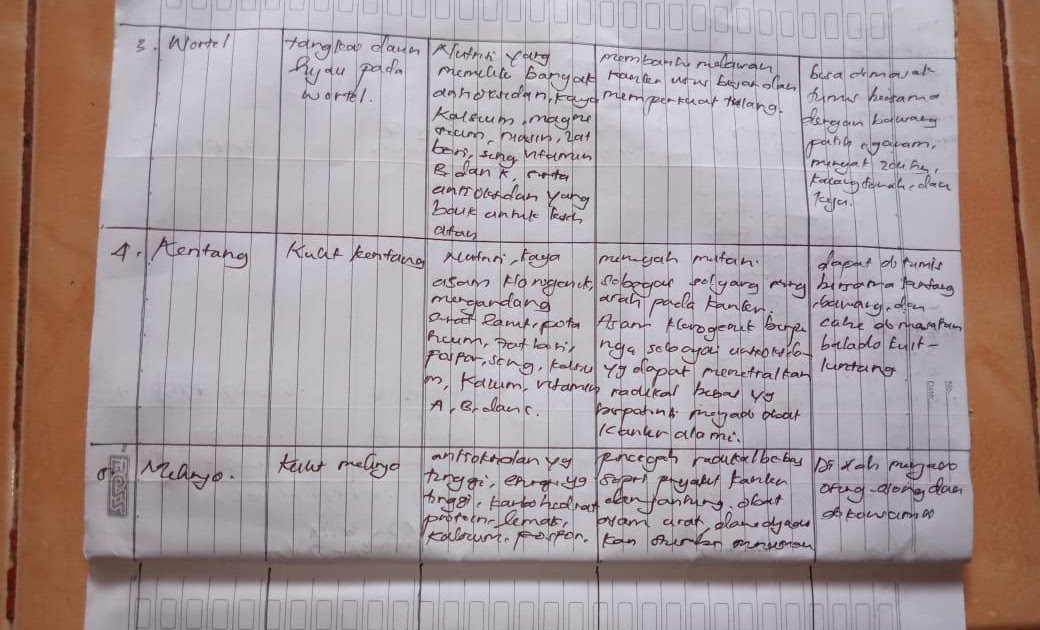 3. Wortel
tangkai daun
hijau pada
wortel.
Nutrisi yang
memiliki banyak
antioksidan, kaya
kalsium, magne
sium, niasin, zat
besi, seng, vitamin
B dan K, serta
antioksidan yang
baik untuk
membantu melawan
kanker usus besar dan
memperkuat tulang.
bisa dimasak
tumis bersama
dengan bawang
putih, ayam,
minyak zaitun,
kacang tanah, dan
keju.
4. Kentang
Kulit kentang
Nutrisi, kaya
asam klorogenik,
mengandung
serat, pota
sium, zat besi,
fosfor, seng, kalsiu
m, kalium, vitamin
A, B, dan C.
mencegah
sebagai sel yang meng
arah pada kanker.
Asam klorogenik
sebagai antioksidan
yg dapat menetralkan
radikal bebas yg
berpotensi menjadi obat
kanker alami.
dapat ditumis
bersama
bawang, dan
cabe
balado kulit
kentang
Date:
No.
5. Melinjo.
Kulit melinjo
antioksidan yg
tinggi, energi yg
tinggi, karbohidrat
protein, lemak,
kalsium, fosfor.
pencegah radikal bebas
penyakit kanker
dan jantung, obat
asam urat,
Di olah menjadi
oseng-oseng dan